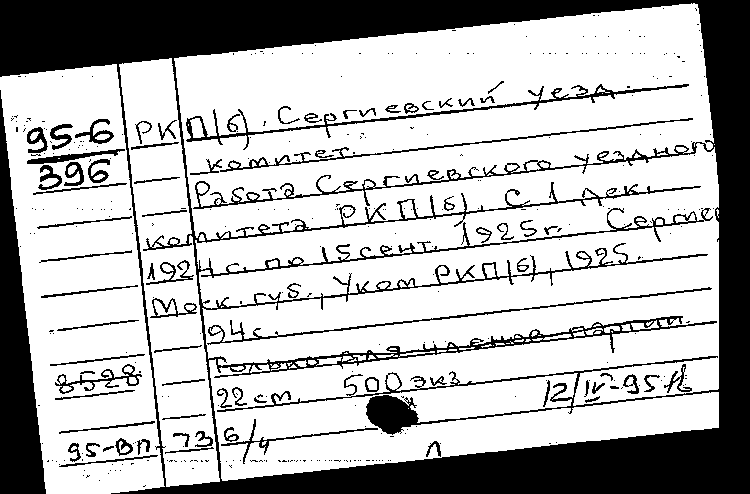 95-6
396
РКП(б). Сергиевский уезд.
комитет.
Работа Сергиевского уездного
комитета РКП(б). С 1 дек.
1924 г. по 15 сент. 1925 г. Сергиев
Моск. губ., Уком РКП(б), 1925.
94 с.
Только для членов партии.
8528
22 см. 500 экз.
12/IV-95
95-ВП-73 6/4